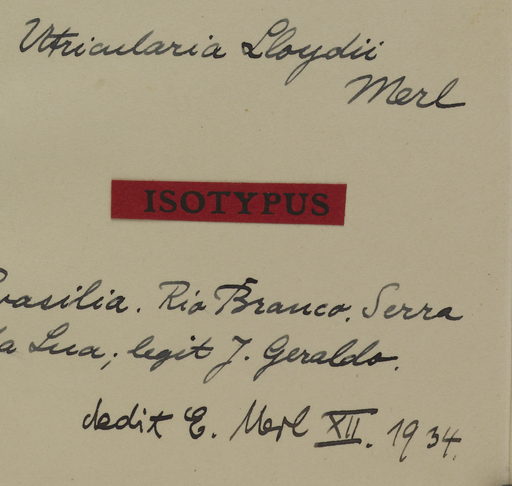 Utricularia Lloydii
Merl
ISOTYPUS
rasilia. Rio Branco. Serra
a Lua; legit J. Geraldo.
dedit E. Merl XII. 1934.